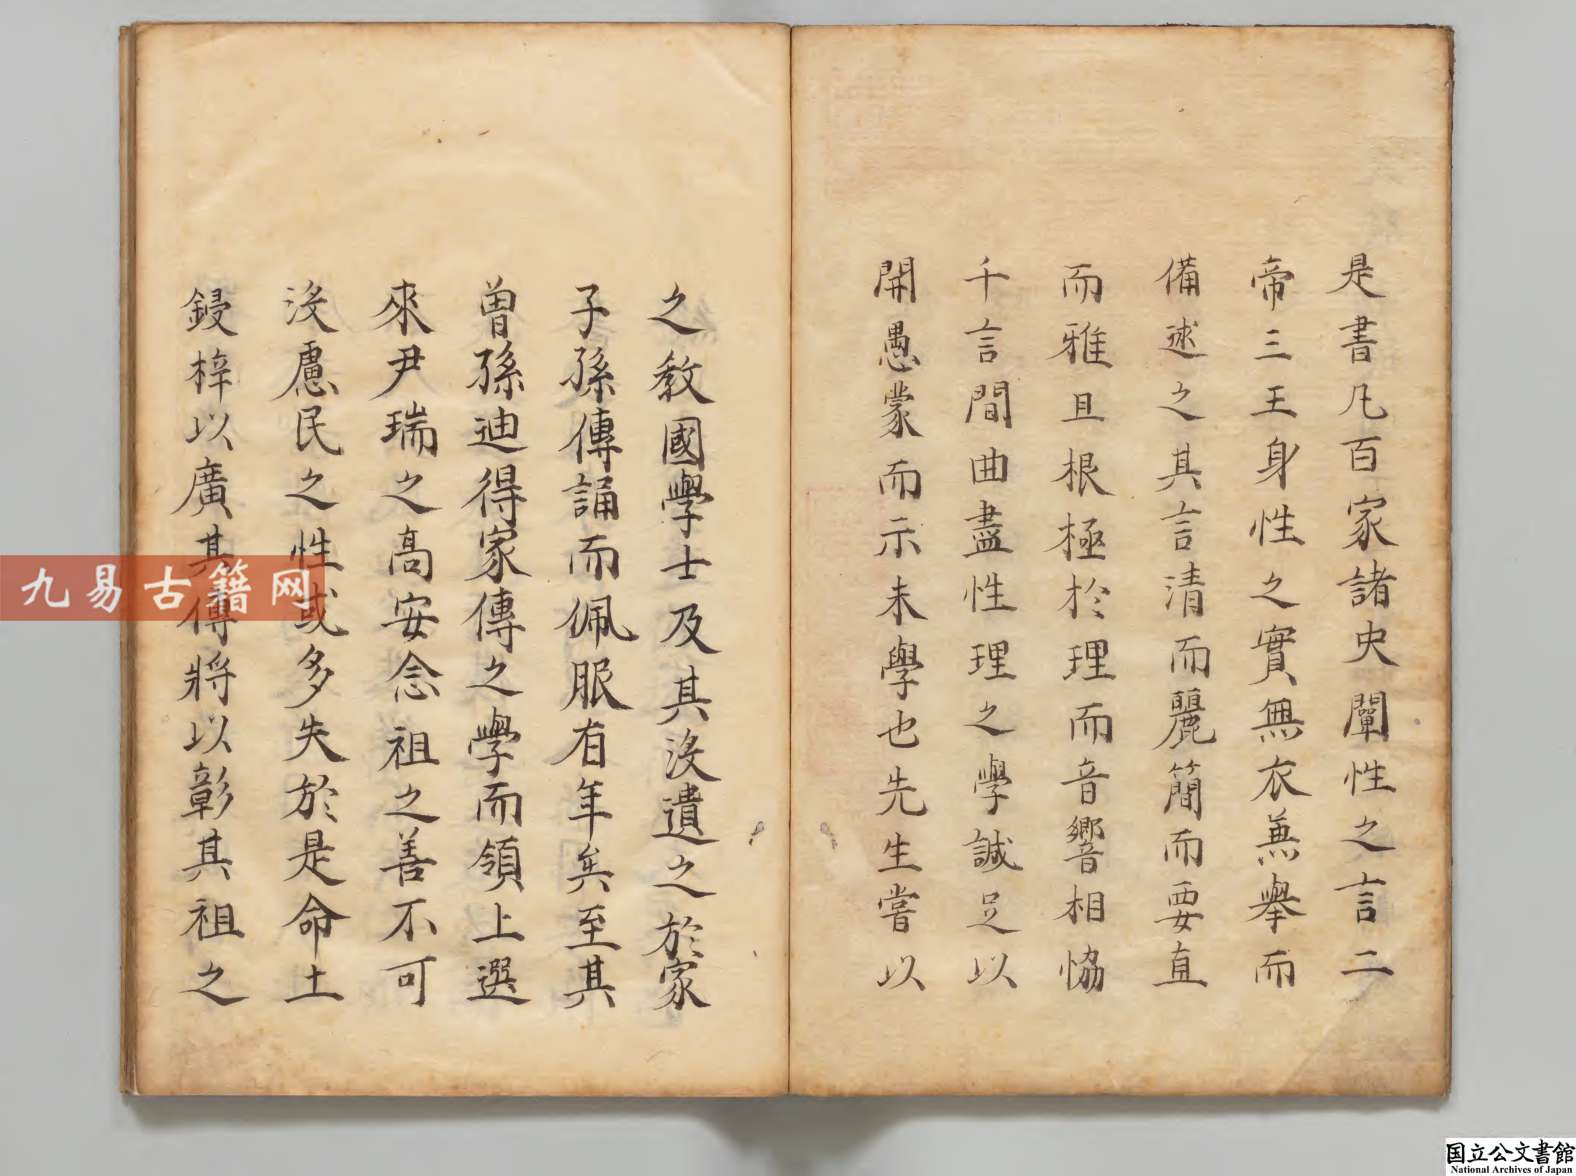 是書凡百家諸史闡性之言二
帝三王身性之實無衣無擧而
備述之其言清而麗簡而要直
而雅且根極於理而音響相恊
千言間曲盡性理之學誠足以
開愚蒙而示未學也先生嘗以
之教國學士及其沒遺之於家
子孫傳誦而佩服有年矣至其
曾孫迪得家傳之學而領上選
來尹瑞之高安念祖之善不可
沒慮民之性或多失於是命工
鋟梓以廣其傳將以彰其祖之
九易古籍网
国立公文書館
National Archives of Japan